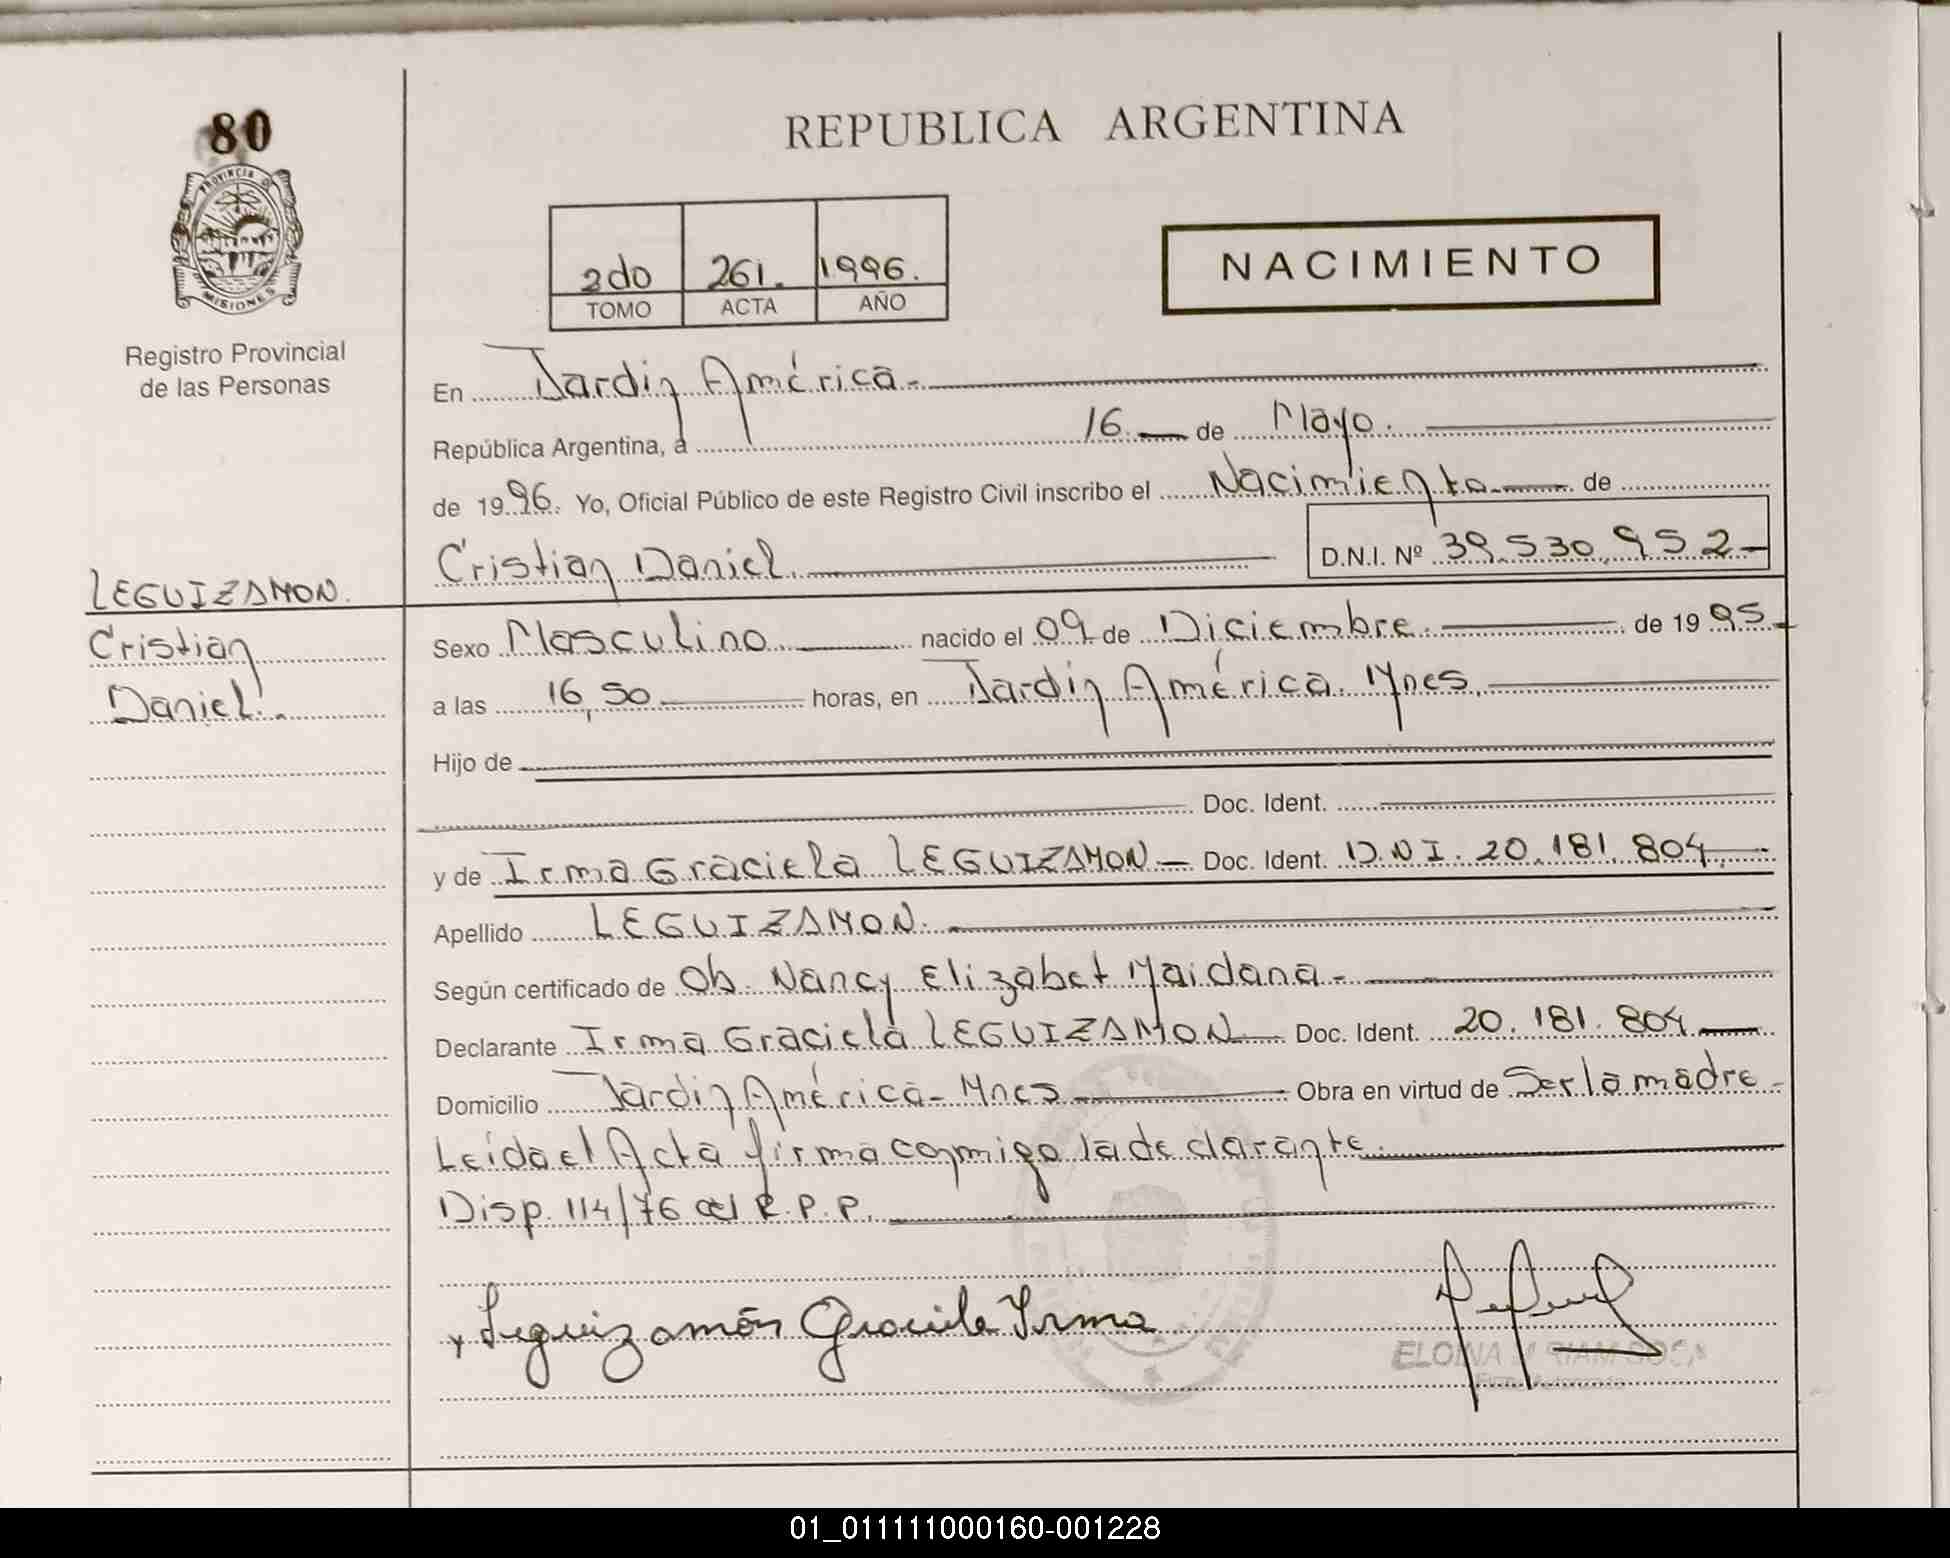 80
PROVINCIA DE
MISIONES
Registro Provincial
de las Personas
REPUBLICA ARGENTINA
2do 261. 1996.
TOMO ACTA AÑO
NACIMIENTO
En Jardín América.-
República Argentina, a 16 de Mayo.
de 1996. Yo, Oficial Público de este Registro Civil inscribo el Nacimiento de
Cristian Daniel. D.N.I. Nº 39.530.952-
LEGUIZAMON.
Cristian
Daniel.
Sexo Masculino nacido el 09 de Diciembre. de 1995
a las 16,50 horas, en Jardín América. Mnes.
Hijo de
Doc. Ident.
y de Irma Graciela LEGUIZAMON Doc. Ident. D.N.I. 20.181.804,
Apellido LEGUIZAMON.
Según certificado de Ob. Nancy Elizabet Maidana-
Declarante Irma Graciela LEGUIZAMON Doc. Ident. 20.181.804
Domicilio Jardín América- Mnes Obra en virtud de Ser la madre-
Leída el Acta firma conmigo la declarante.
Disp. 114/76 del R.P.P.
Leguizamón Graciela Irma
ELOINA
01_011111000160-001228